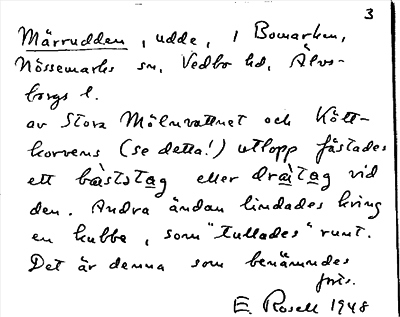 3
Märrudden, udde, i Bomarken,
Nössemarks sn, Vedbo hd, Älvs-
borgs l.
av Stora Mölnvattnet och Kött-
korvens (se detta!) utlopp fästades
ett bàststag eller dràtag vid
den. Andra ändan lindades kring
en kubbe, som "tullades" runt.
Det är denna som benämndes
E. Rosell 1948